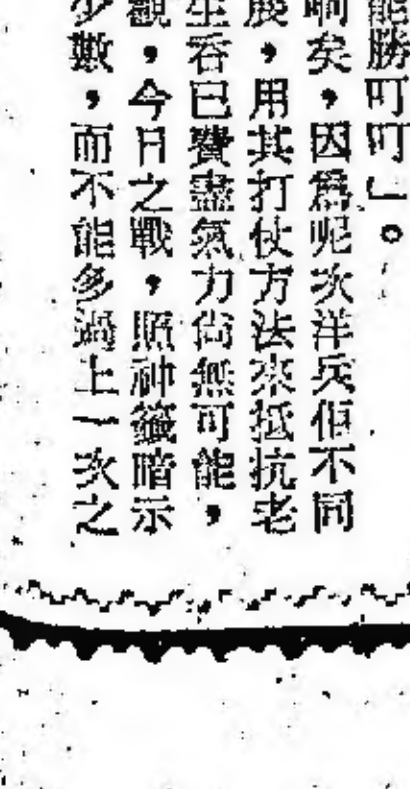 能勝叮叮」。
啊矣,因爲呢次洋兵佢不同
展,用其打仗方法來抵抗老
生吞已費盡氣力尙無可能,
觀,今日之戰,照神籤暗示
少數,而不能多過上一次之